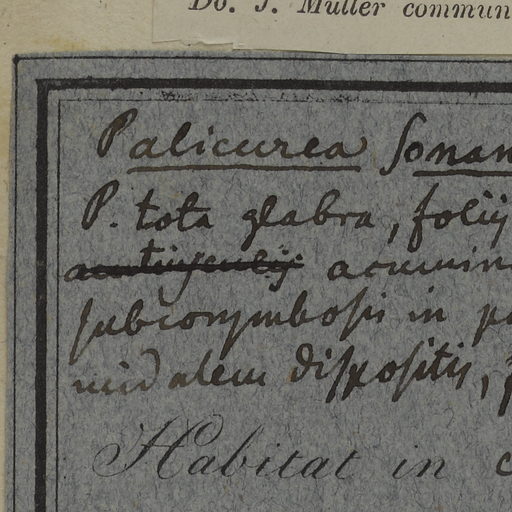 Do. J. Müller commun
Palicurea Sonan
P. tota glabra, foliis
acumin
subcorymbosis in p
midalem dispositis,
Habitat in c